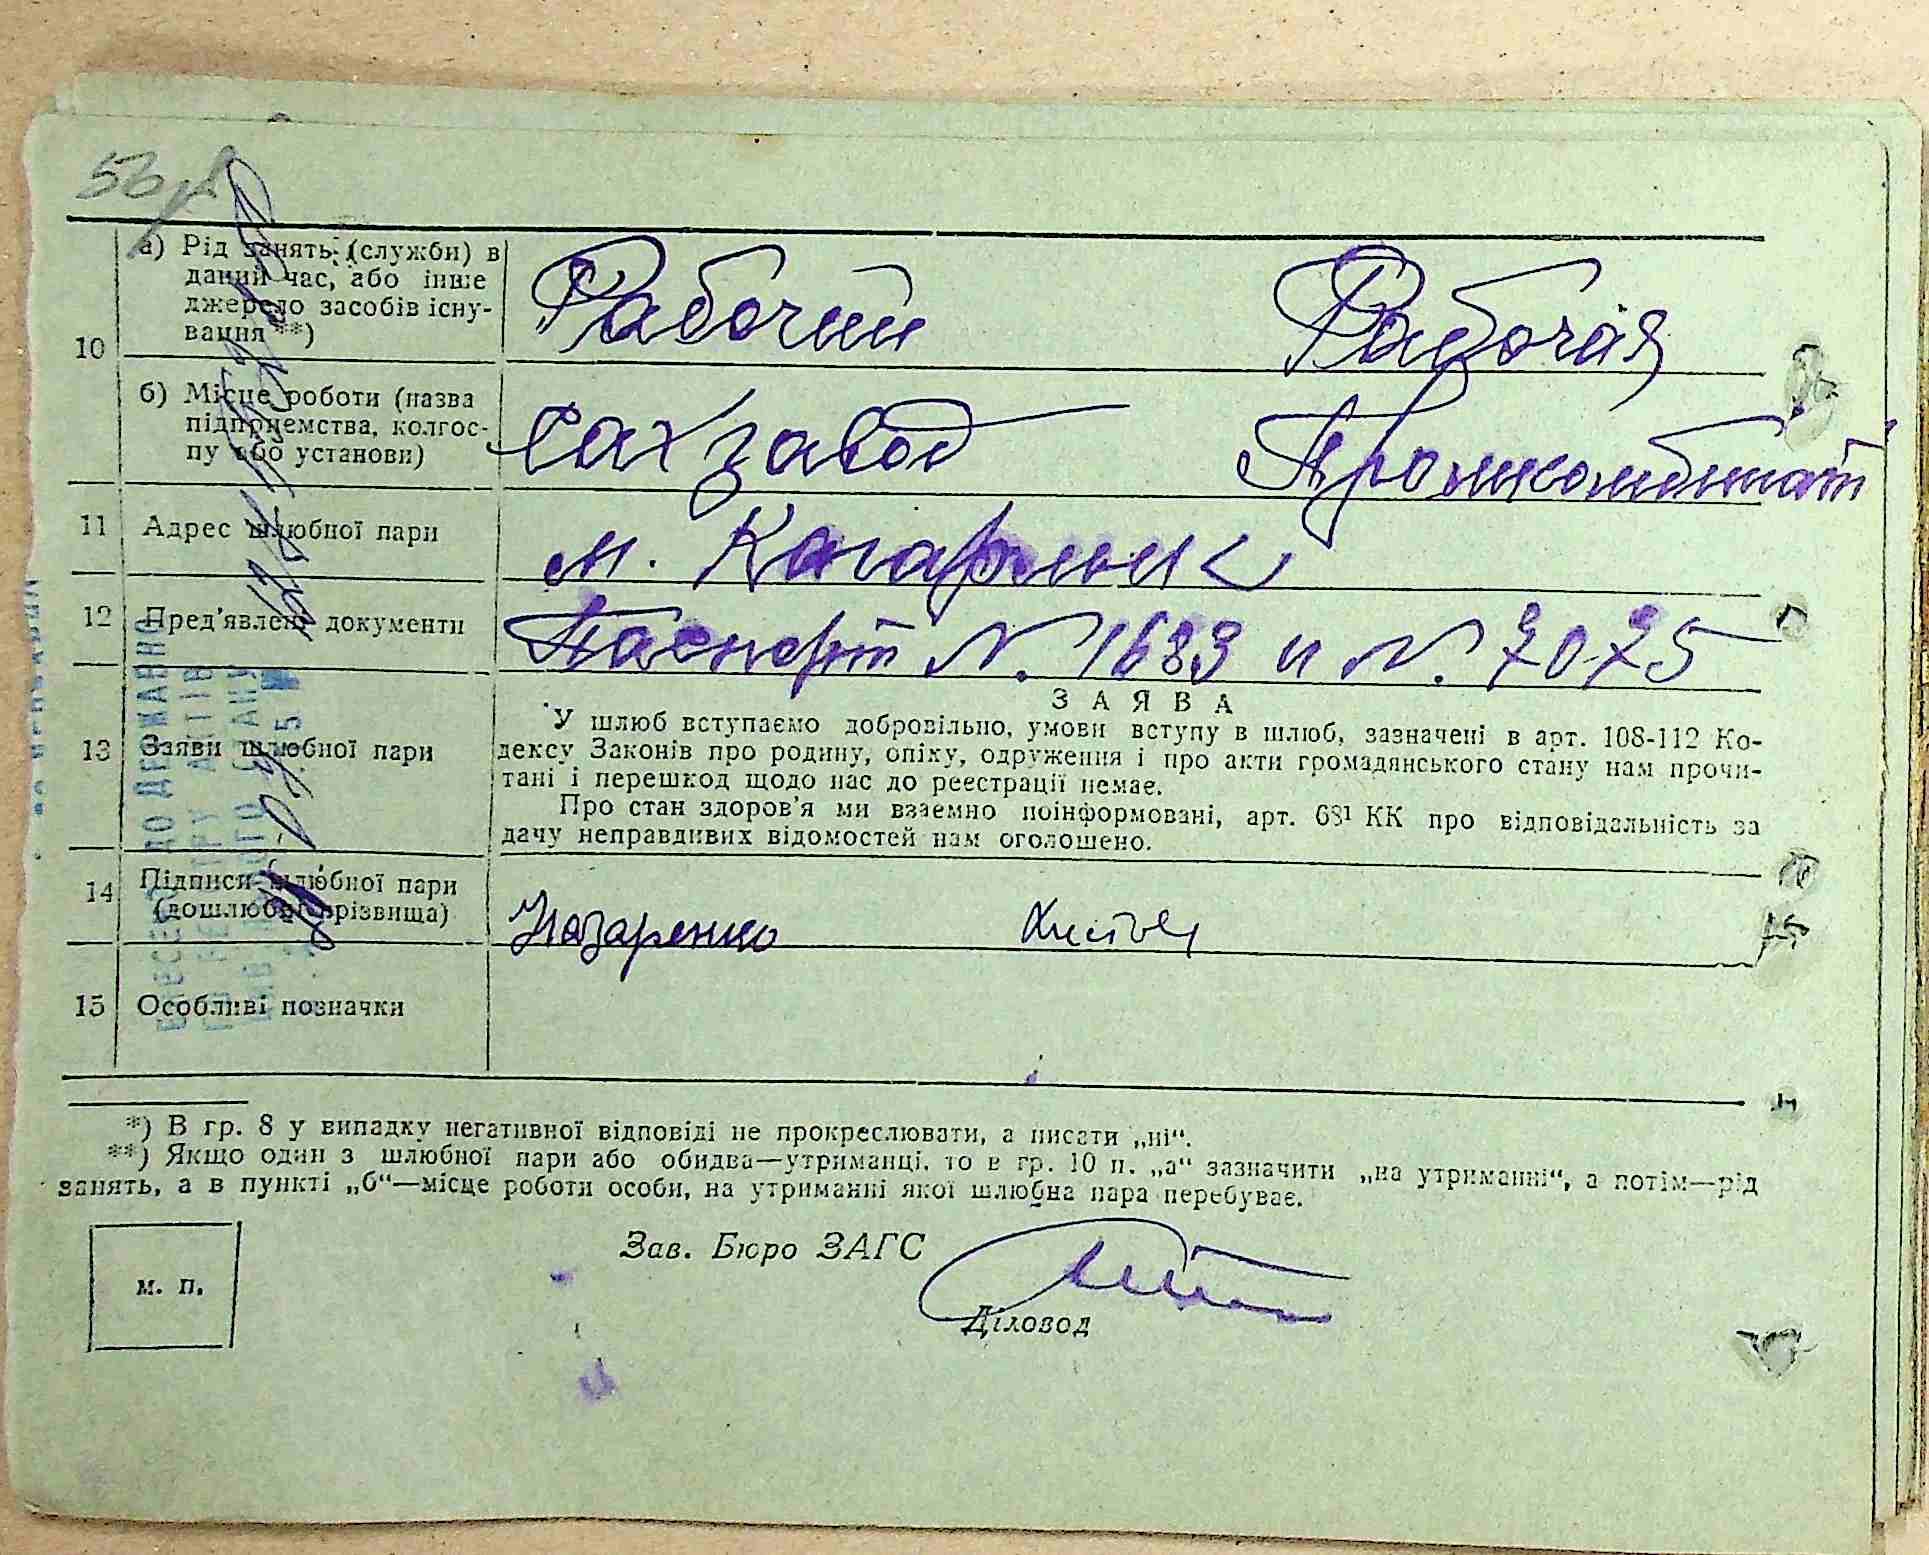 56
а) Рід занять (служби) в
даний час, або інше
джерело засобів існу-
вання **)
Рабочий Рабочая
10
б) Місце роботи (назва
підприємства, колгос-
пу або установи)
Сахзавод Промкомбинат
11 Адрес шлюбної пари м. Кагарлик
12 Пред'явлені документи Паспорт N. 1683 и N. 7075
ЗАЯВА
13 Заяви шлюбної пари
У шлюб вступаємо добровільно, умови вступу в шлюб, зазначені в арт. 108-112 Ко-
дексу Законів про родину, опіку, одруження і про акти громадянського стану нам прочи-
тані і перешкод щодо нас до реєстрації немає.
Про стан здоров'я ми взаємно поінформовані, арт. 68¹ КК про відповідальність за
дачу неправдивих відомостей нам оголошено.
14 Підписи шлюбної пари
(дошлюбні прізвища)
Назаренко
15 Особливі позначки
*) В гр. 8 у випадку негативної відповіді не прокреслювати, а писати „ні“.
**) Якщо один з шлюбної пари або обидва—утриманці, то в гр. 10 п. „а“ зазначити „на утриманні“, а потім—рід
занять, а в пункті „б“—місце роботи особи, на утриманні якої шлюбна пара перебуває.
Зав. Бюро ЗАГС
м. п.
Діловод